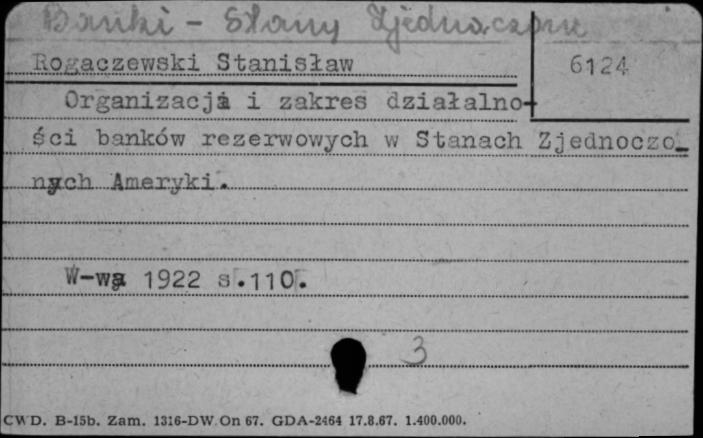 Banki - Stany Zjednoczone
Rogaczewski Stanisław
6124
Organizacja i zakres działalno-
ści banków rezerwowych w Stanach Zjednoczo_
nych Ameryki.
W-wa 1922 s.110.
3
CWD. B-15b. Zam. 1316-DW On 67. GDA-2464 17.8.67. 1.400.000.